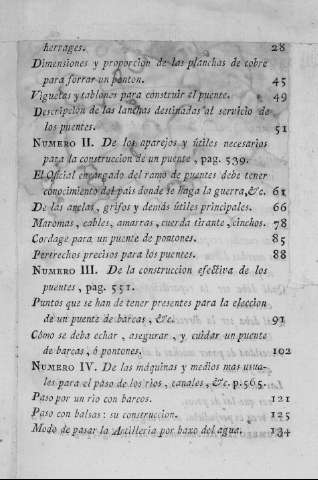 herrages. 28
Dimensiones y proporcion de las planchas de cobre
para forrar un ponton. 45
Viguetas y tablones para construir el puente. 49
Descripcion de las lanchas destinadas al servicio de
los puentes. 51
NUMERO II. De los aparejos y útiles necesarios
para la construccion de un puente, pag. 539.
El Oficial encargado del ramo de puentes debe tener
conocimiento del pais donde se haga la guerra, &c. 61
De las anclas, grifos y demás útiles principales. 66
Maromas, cables, amarras, cuerda tirante, cinchos. 78
Cordage para un puente de pontones. 85
Pertrechos precisos para los puentes. 88
NUMERO III. De la construccion efectiva de los
puentes, pag. 551.
Puntos que se han de tener presentes para la eleccion
de un puente de barcas, &c. 91
Cómo se deba echar, asegurar, y cuidar un puente
de barcas, ó pontones. 102
NUMERO IV. De las máquinas y medios mas usua-
les para el paso de los rios, canales, &c. p. 565.
Paso por un rio con barcos. 121
Paso con balsas: su construccion. 125
Modo de pasar la Artillería por baxo del agua. 134